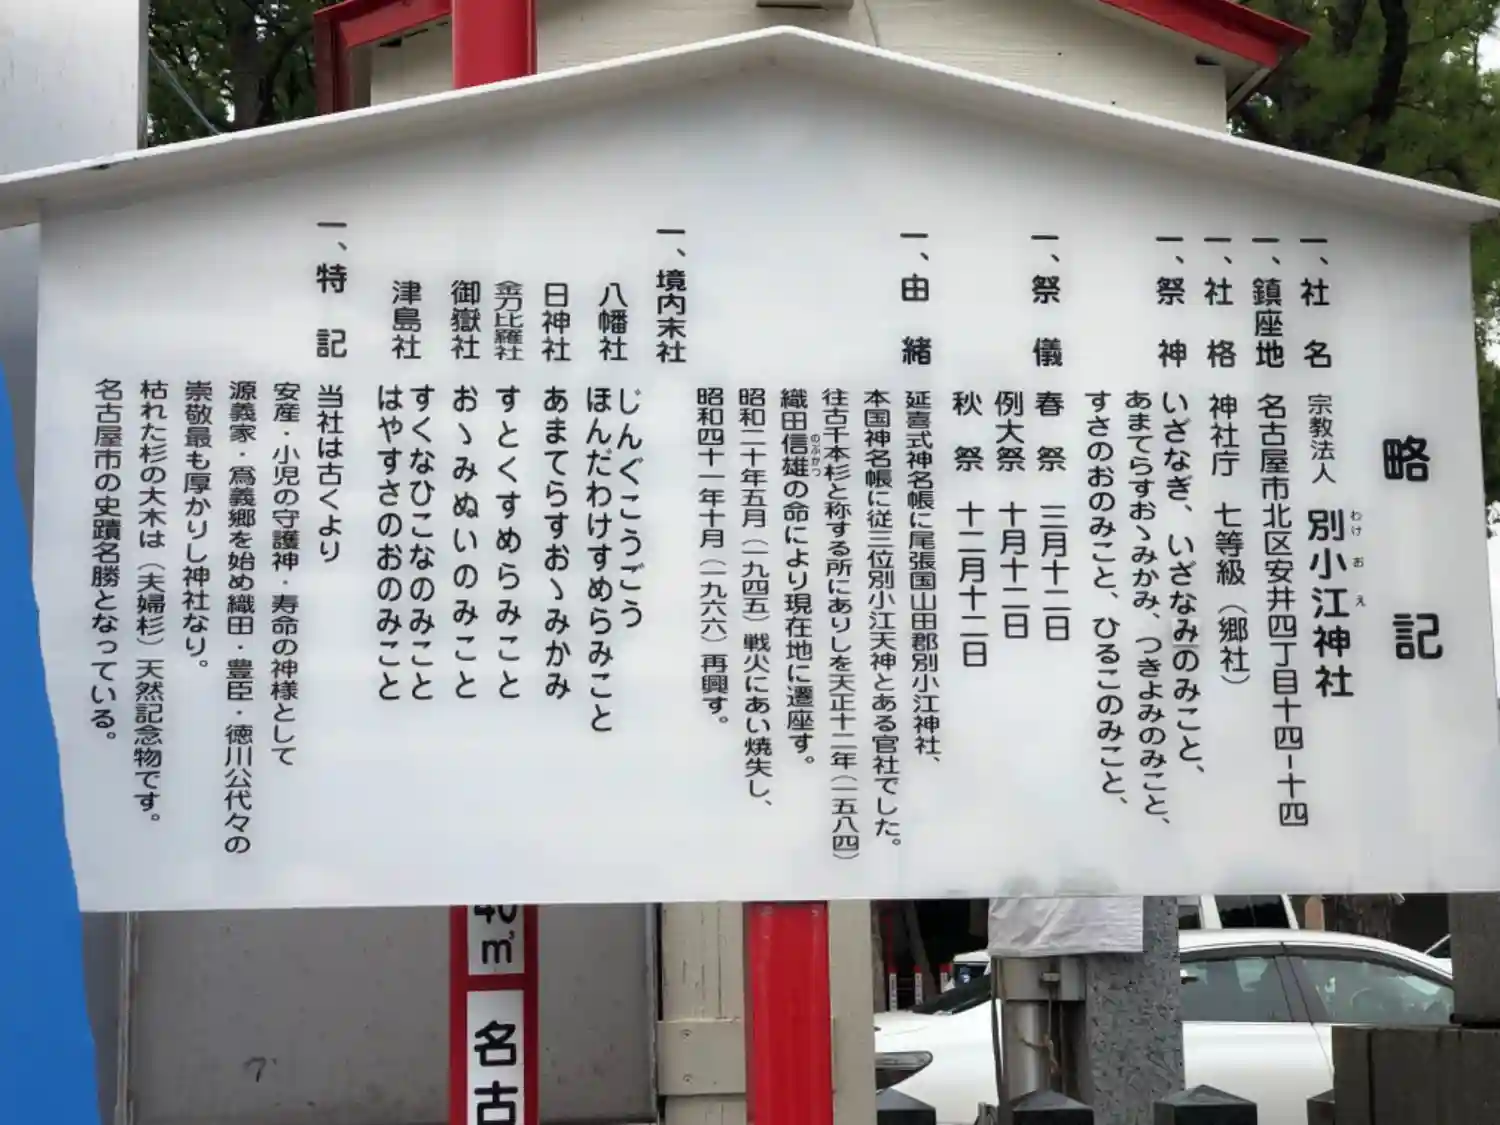 略記
一、社名 宗教法人 別小江神社
わけおえ
一、鎮座地 名古屋市北区安井四丁目十四-十四
一、社格 神社庁 七等級（郷社）
一、祭神 いざなぎ、いざなみのみこと、
あまてらすおゝみかみ、つきよみのみこと、
すさのおのみこと、ひるこのみこと、
一、祭儀 春祭 三月十二日
例大祭 十月十二日
秋祭 十二月十二日
一、由緒 延喜式神名帳に尾張国山田郡別小江神社、
本国神名帳に従三位別小江天神とある官社でした。
往古千本杉と称する所にありしを天正十二年（一五八四）
織田信雄の命により現在地に遷座す。
のぶかつ
昭和二十年五月（一九四五）戦火にあい焼失し、
昭和四十一年十月（一九六六）再興す。
一、境内末社
八幡社 じんぐこうごう
ほんだわけすめらみこと
日神社 あまてらすおゝみかみ
金刀比羅社 すとくすめらみこと
御嶽社 おゝみぬいのみこと
津島社 すくなひこなのみこと
はやすさのおのみこと
一、特記 当社は古くより
安産・小児の守護神・寿命の神様として
源義家・爲義郷を始め織田・豊臣・徳川公代々の
崇敬最も厚かりし神社なり。
枯れた杉の大木は（夫婦杉）天然記念物です。
名古屋市の史蹟名勝となっている。
40㎥
名古